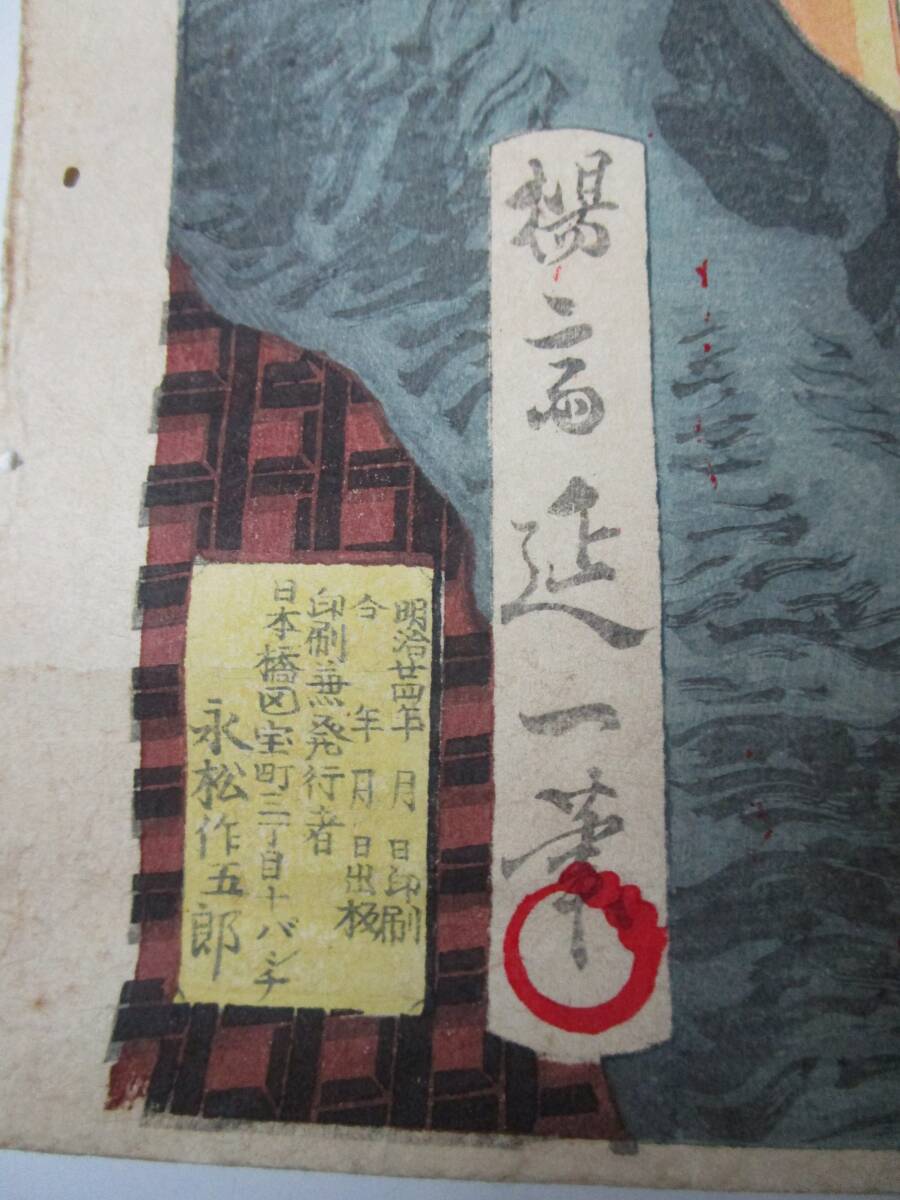 楊斎延一筆
明治廿四年 月 日印刷
仝 年 月 日出板
印刷兼発行者
日本橋区室町三丁目十バンチ
永松作五郎